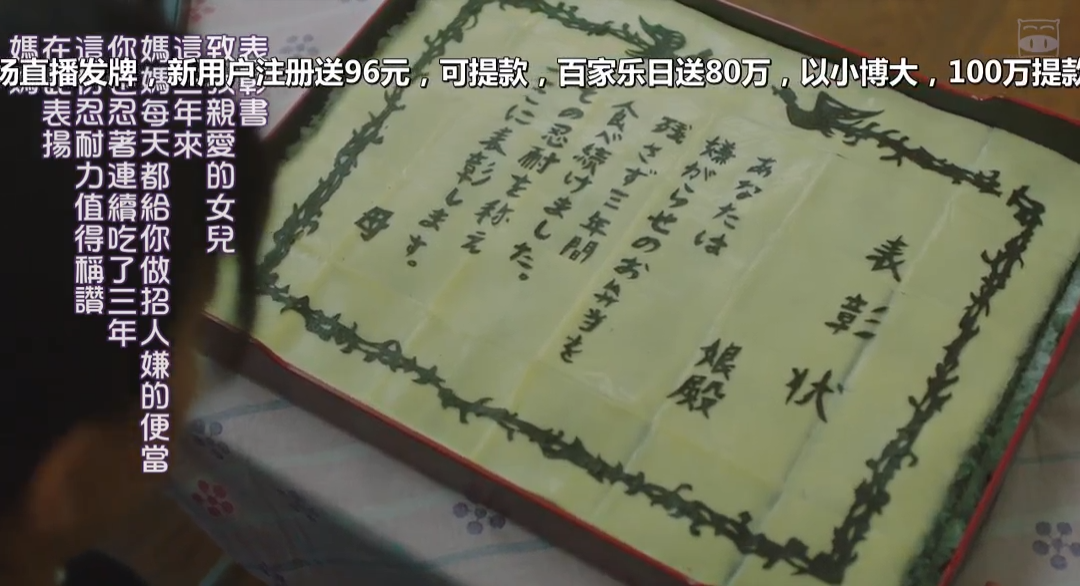 表彰状
娘殿
あなたは
嫌がらせのお弁当を
残さず三年間
食べ続けました。
その忍耐を称え
ここに表彰します。
母
表彰書
致我親愛的女兒
這三年來
媽媽每天都給你做招人嫌的便當
忍著連續吃了三年
忍耐力值得稱讚
表揚
场直播发牌，新用户注册送96元，可提款，百家乐日送80万，以小博大，100万提款